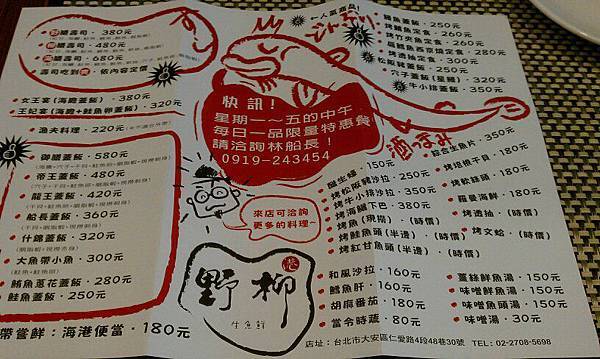 野膳壽司·380元
柳膳壽司·480元
海膳壽司·680元
壽司吃到爽·依內容定價
女王宴(海膽蓋飯)·320元
王妃宴(海膽+鮭魚卵蓋飯)·320元
漁夫料理·220元
御膳蓋飯·580元
帝王蓋飯·480元
龍王蓋飯·420元
船長蓋飯·360元
什錦蓋飯·320元
大魚帶小魚·300元
鮪魚蔥花蓋飯·280元
鮭魚蓋飯·250元
帶嘗鮮:海港便當·180元
快訊!
星期一~五的中午
每日一品限量特惠餐
請洽詢林船長!
0919-243454
來店可洽詢
更多的料理~
野柳
巷
生魚鮮
人氣商品!
鯛魚蓋飯·250元
烤鯖魚定食·260元
烤竹夾魚定食·260元
扁鱈魚西京燒定食·280元
烤透抽定食·300元
松阪豬蓋飯·250元
穴子蓋飯(星鰻)·320元
牛小排蓋飯·350元
酒
綜合生魚片·350元
醋生蠔·150元
烤松阪豬沙拉·250元
烤牛小排沙拉·350元
烤海鱺下巴·380元
烤魚(現撈)·(時價)
烤鮭魚頭(半邊)·(時價)
烤紅甘魚頭(半邊)·(時價)
烤培根干貝·180元
烤軟絲頭·180元
羅曼海鮮·180元
烤透抽·(時價)
烤文蛤·(時價)
和風沙拉·160元
鱈魚肝·160元
胡麻番茄·180元
當令時蔬·80元
薑絲鮮魚湯·150元
味噌鮮魚湯·150元
味噌魚頭湯·150元
味噌湯·30元
店址:台北市大安區仁愛路4段48巷30號 TEL:02-2708-5698